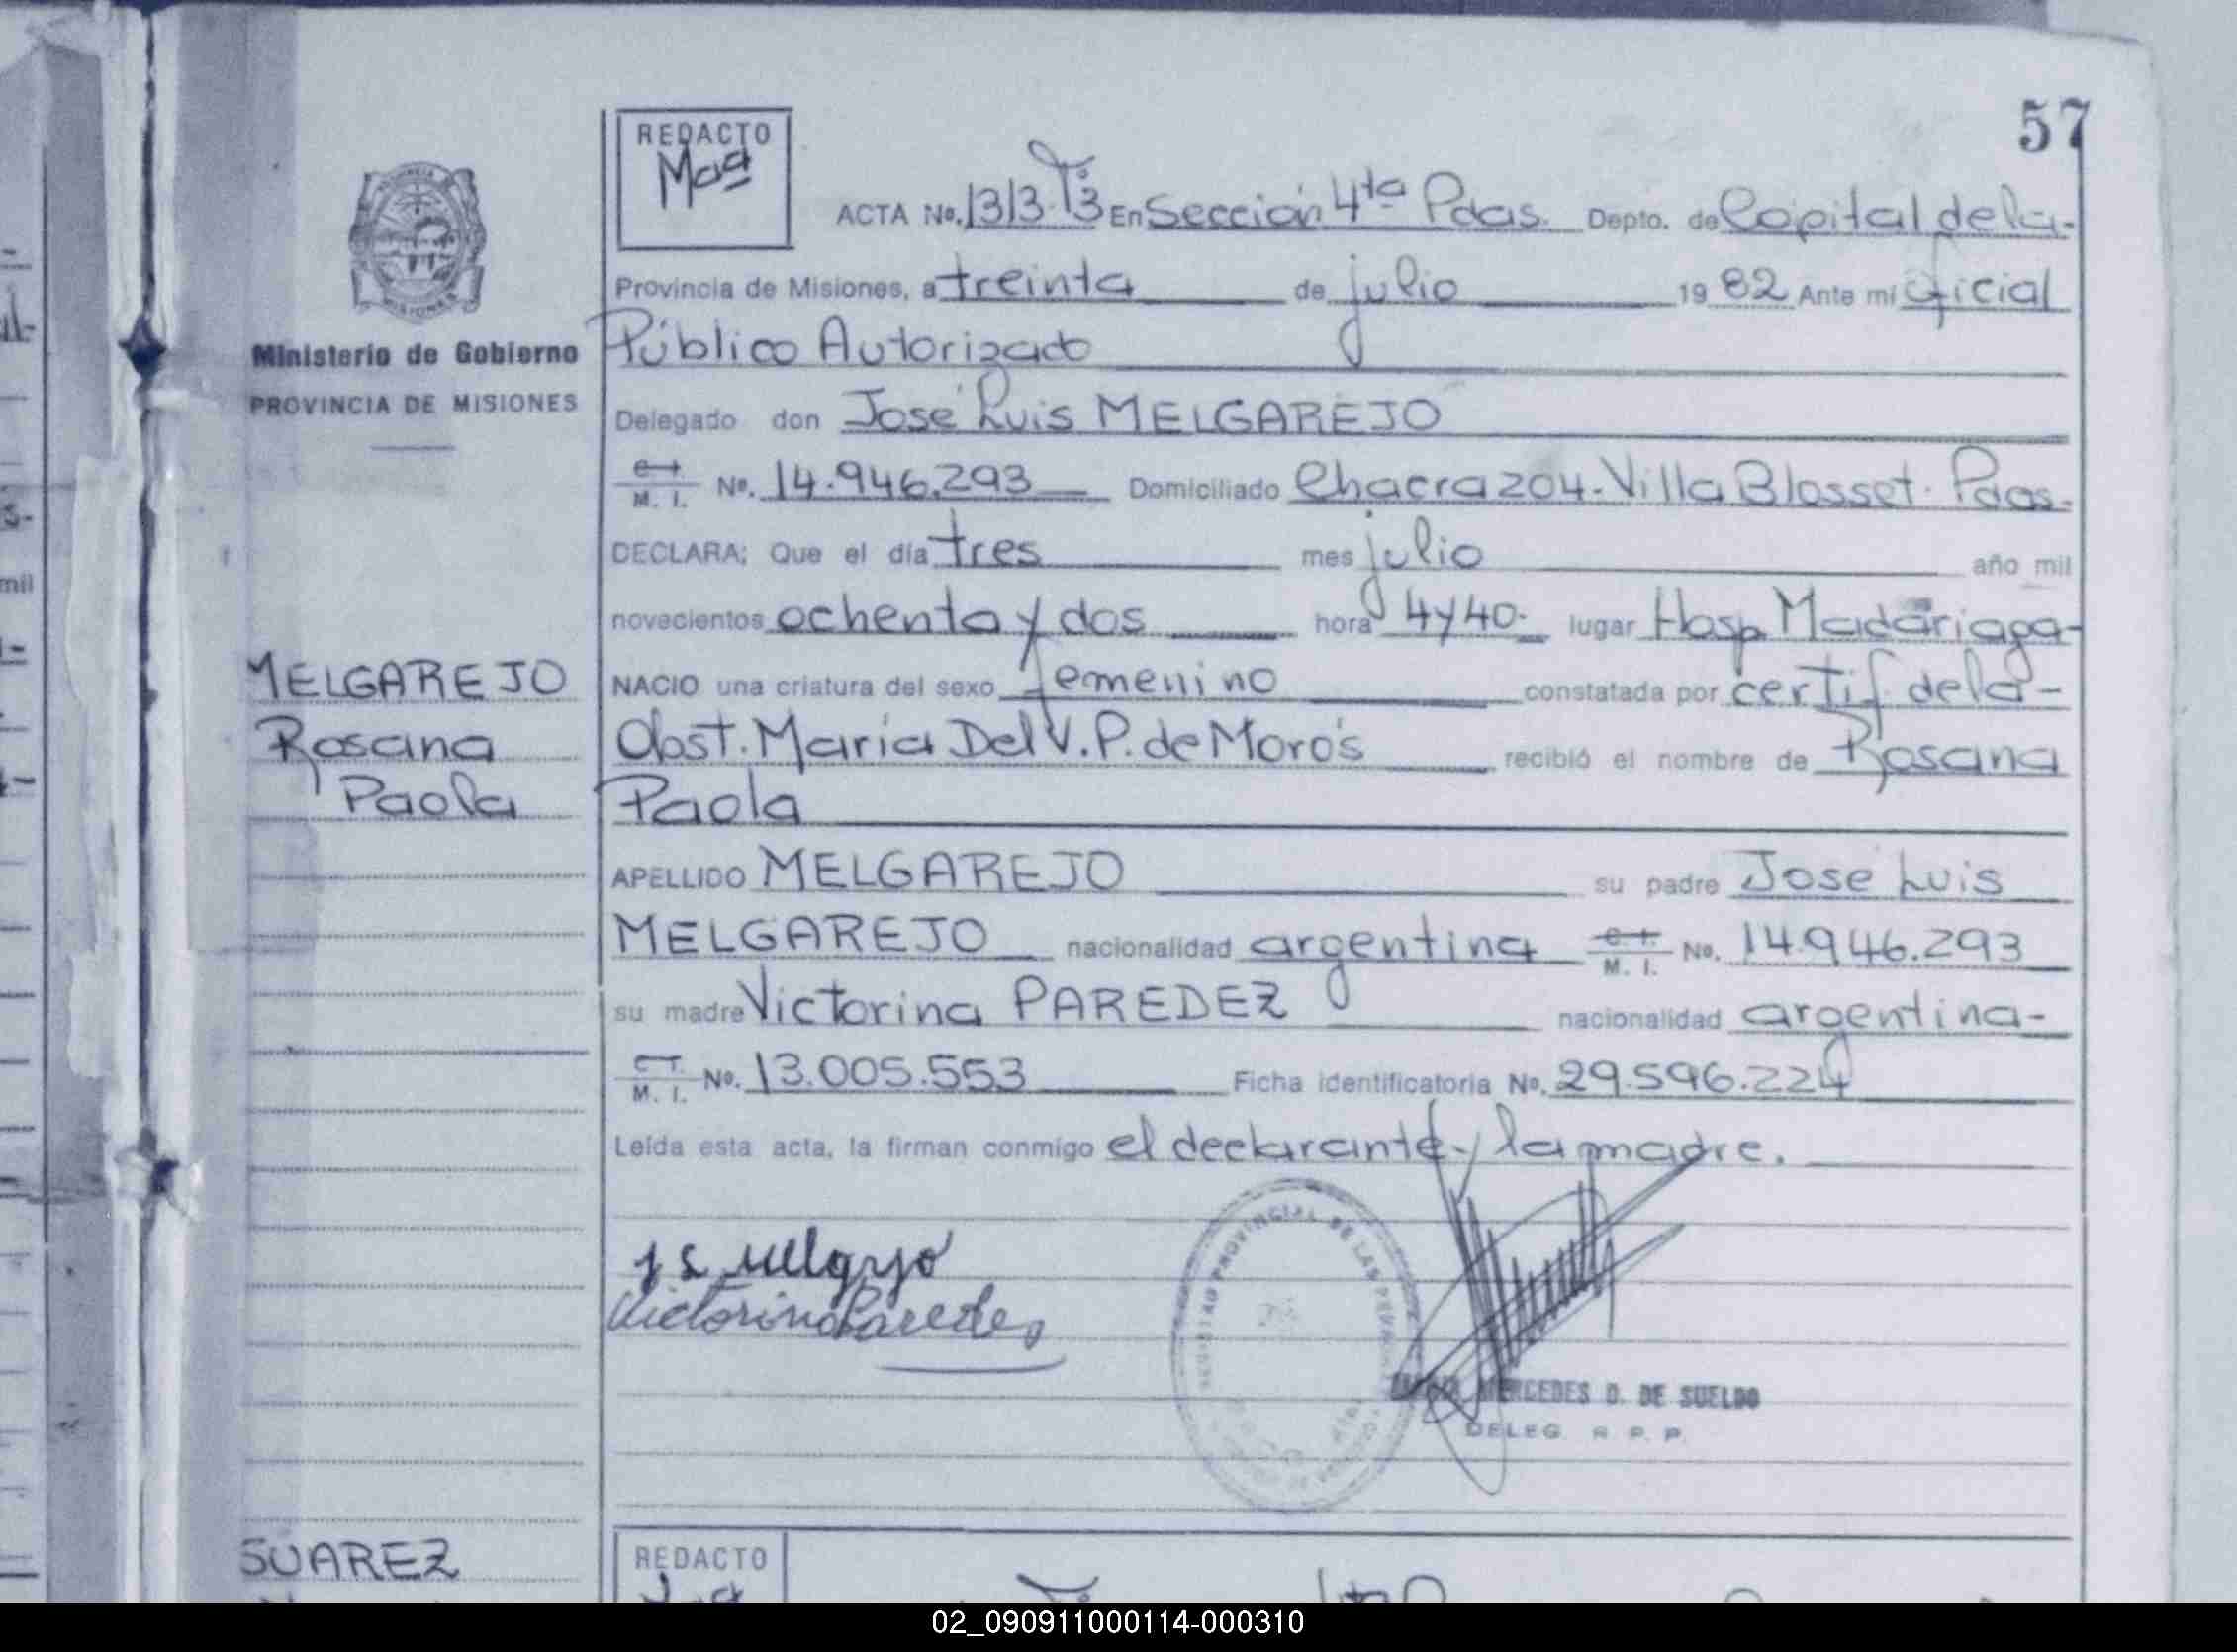 57
REDACTO
Maa
ACTA No. 1313 T3 En Sección 4ta Pdas. Depto. de Capital de la-
Provincia de Misiones, a treinta de julio 19 82 Ante mi Oficial
Público Autorizado
Ministerio de Gobierno
PROVINCIA DE MISIONES
Delegado don José Luis MELGAREJO
M. I. No. 14.946.293 Domiciliado Chacra 204. Villa Blosset. Pdas.
DECLARA; Que el día tres mes julio año mil
novecientos ochenta y dos hora 4y40- lugar Hosp. Madariaga-
MELGAREJO
Rosana
Paola
NACIO una criatura del sexo femenino constatada por certif de la-
Obst. María Del V. P. de Moro's recibió el nombre de Rosana
Paola
APELLIDO MELGAREJO su padre José Luis
MELGAREJO nacionalidad argentina M. I. No. 14.946.293
su madre Victorina PAREDEZ nacionalidad argentina-
C. I. M. I. No. 13.005.553 Ficha identificatoria No. 29.596.224
Leída esta acta, la firman conmigo el declarante y la madre.
Victorina Paredes
MERCEDES D. DE SUELDO
DELEG. R P. P.
SUAREZ
REDACTO
02_090911000114-000310